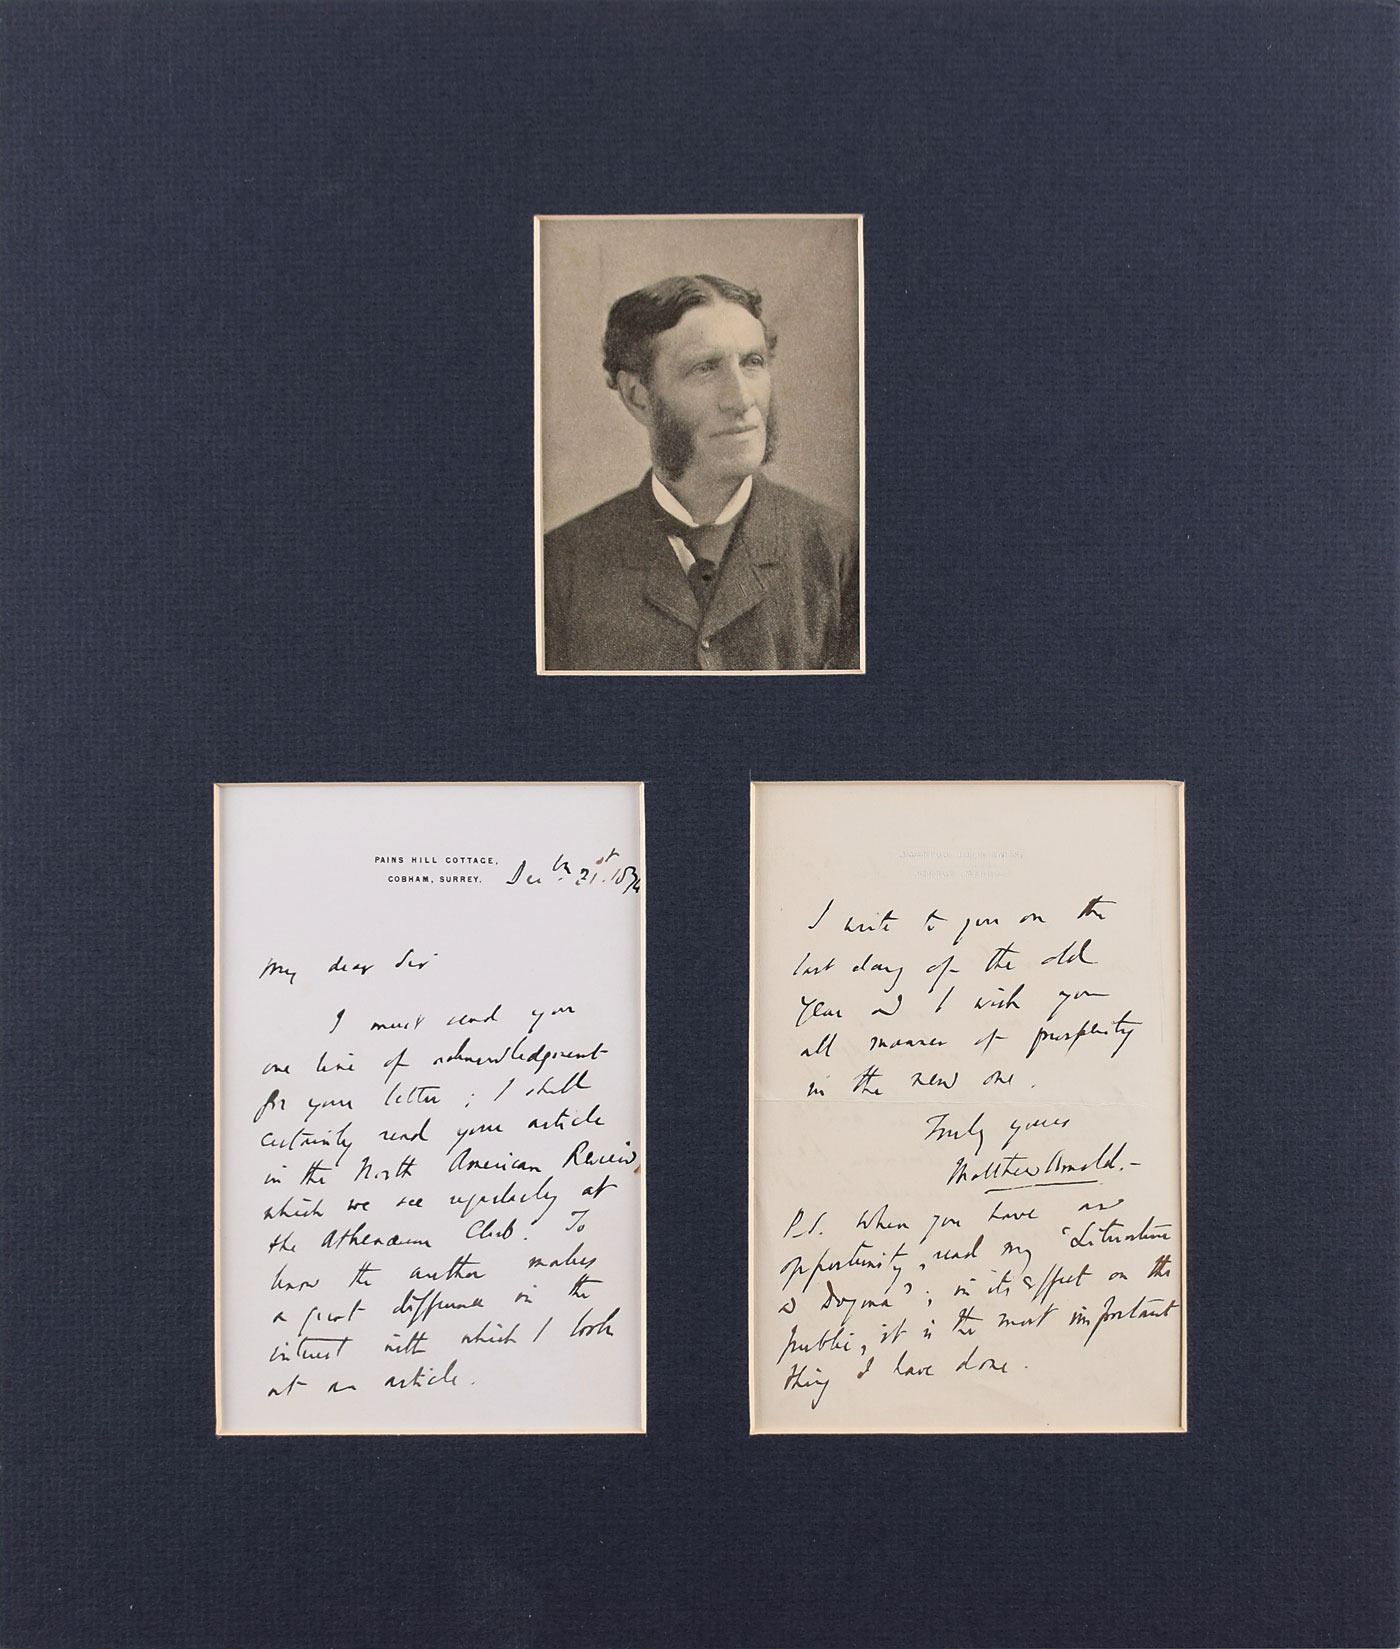 PAINS HILL COTTAGE,
COBHAM, SURREY.
Decbr 31st. 187
My dear Sir
I must send you
one line of acknowledgment
for your letter ; I shall
certainly read your article
in the North American Review,
which we see regularly at
the Athenæum Club. To
know the author makes
a great difference in the
interest with which I look
at an article.
I write to you on the
last day of the old
year and I wish you
all manner of prosperity
in the new one.
Truly yours
Matthew Arnold.–
P.S. When you have an
opportunity, read my "Literature
& Dogma" ; in its effect on the
public, it is the most important
thing I have done.